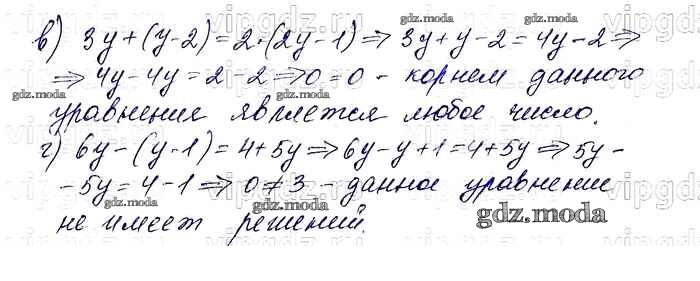 в) 3y+(y-2)=2·(2y-1)⇒3y+y-2=4y-2⇒
⇒4y-4y=2-2⇒0=0 - корнем данного
уравнения является любое число.
г) 6y-(y-1)=4+5y⇒6y-y+1=4+5y⇒5y-
-5y=4-1⇒0≠3 - данное уравнение
не имеет решений.
gdz.moda
gdz.moda
gdz.moda
gdz.moda
gdz.moda
gdz.moda
gdz.moda
gdz.moda